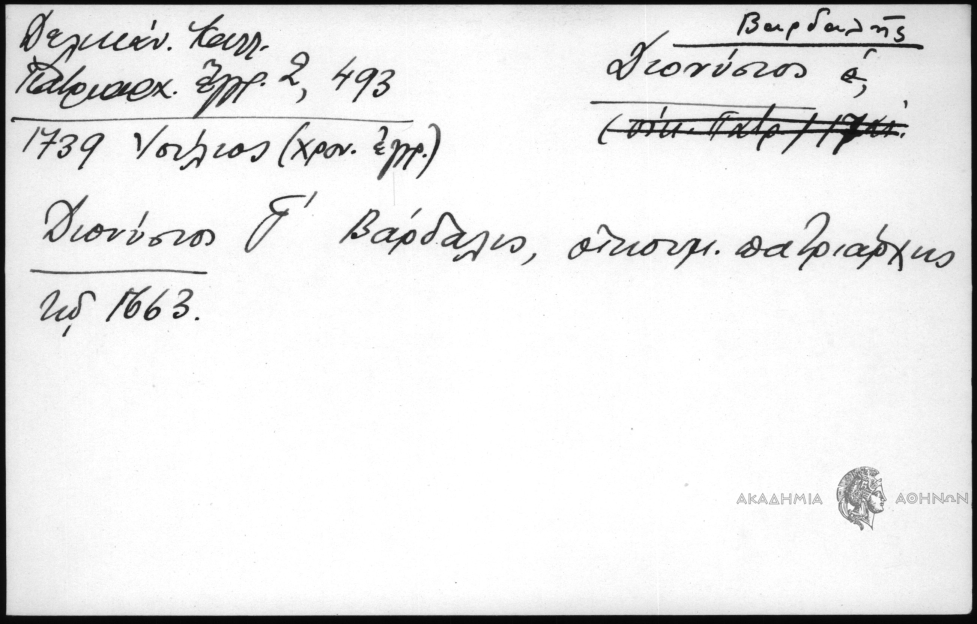 Δελικάν. Καλλ.
Πατριαρχ. ἔγγρ. 2, 493
1739 Ἰούλιος (χρον. ἐγγρ.)
Βαρδαλῆς
Διονύσιος
Διονύσιος Γ´ Βάρδαλις, οἰκουμ. πατριάρχης
τῷ 1663.
ΑΚΑΔΗΜΙΑ ΑΘΗΝΩΝ